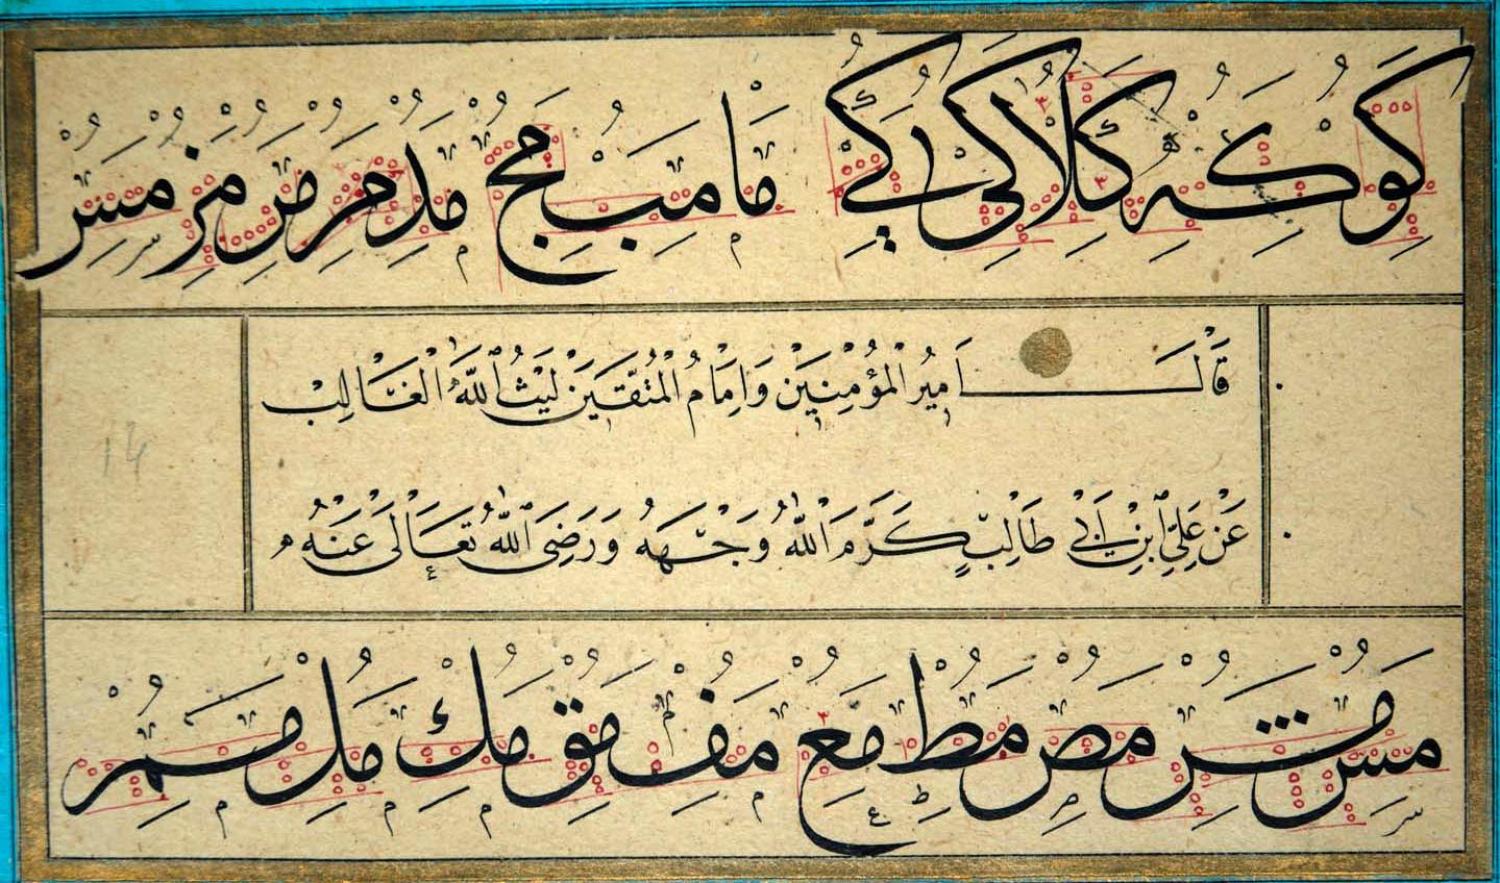 كو كه كلا كى كے ما مب مح مد مر مر مز مسر
قال امير المؤمنين وامام المتقين ليث الله الغالب
عن على ابن ابى طالب كرم الله وجهه ورضى الله تعالى عنه م
14
مس مش مص مط مع مف مق مك مل مم